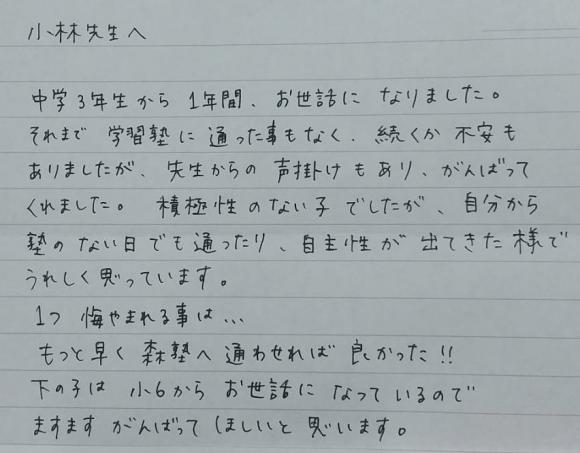 小林先生へ
中学3年生から1年間、お世話になりました。
それまで学習塾に通った事もなく、続くか不安も
ありましたが、先生からの声掛けもあり、がんばって
くれました。積極性のない子でしたが、自分から
塾のない日でも通ったり、自主性が出てきた様で
うれしく思っています。
1つ悔やまれる事は…
もっと早く森塾へ通わせれば良かった!!
下の子は小6からお世話になっているので
ますますがんばってほしいと思います。